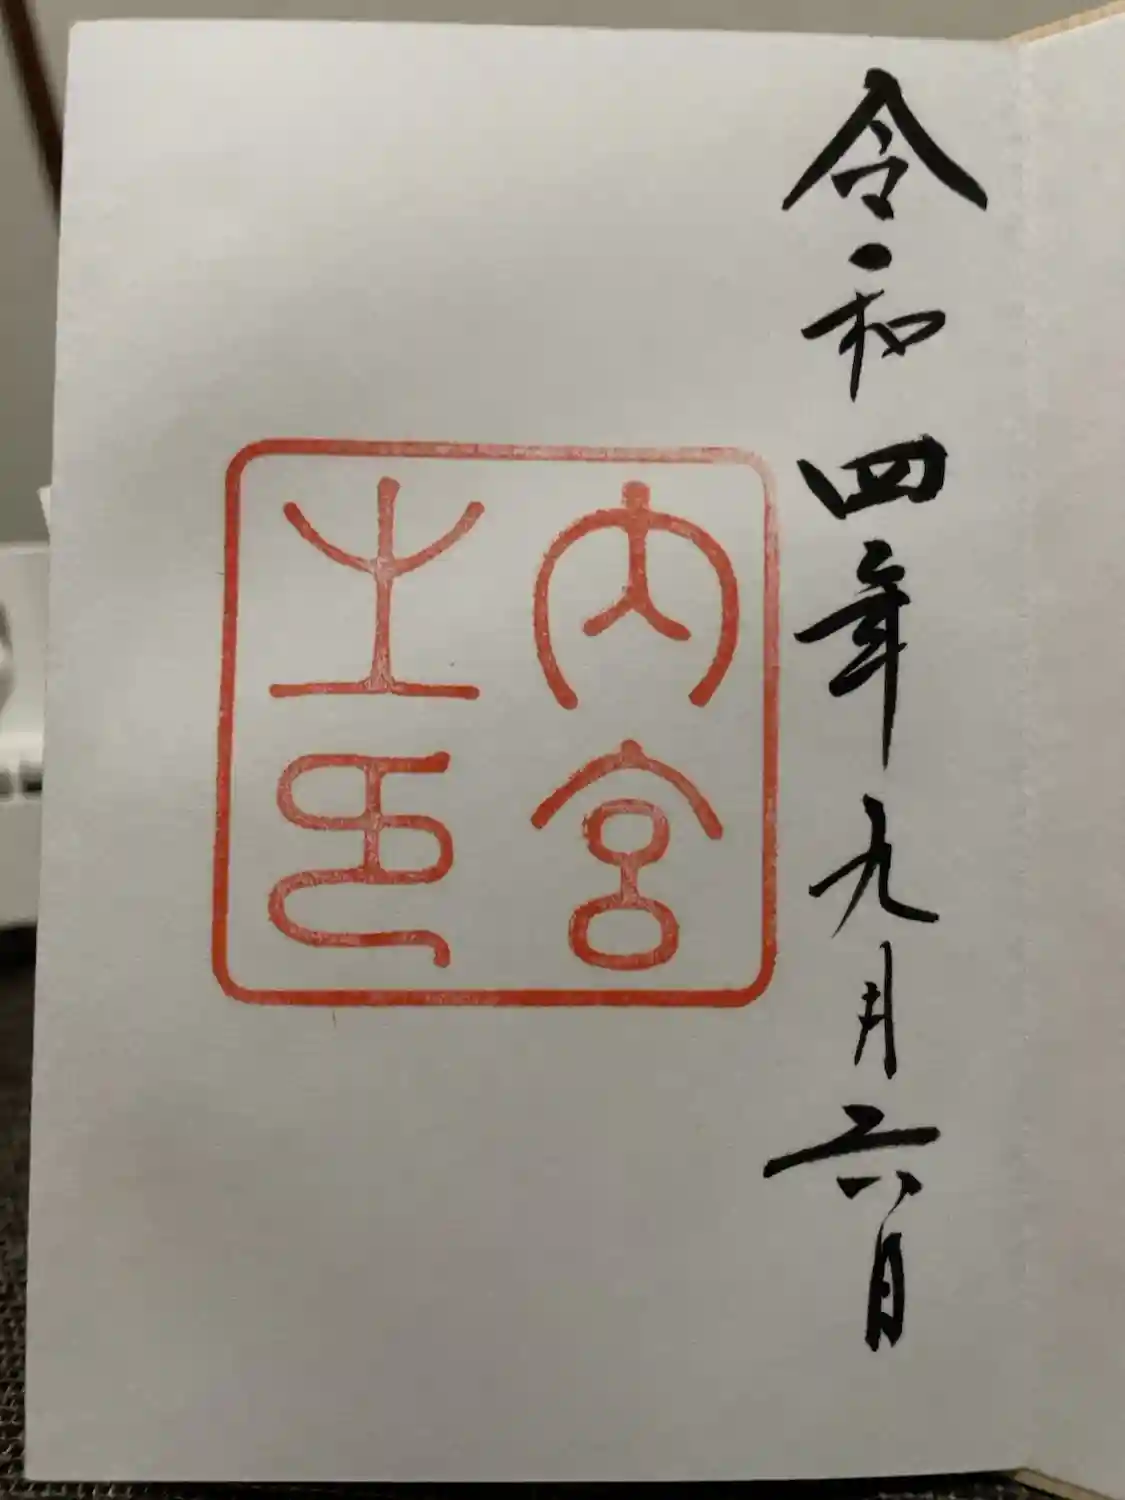 令和四年九月六日
内宮
之印